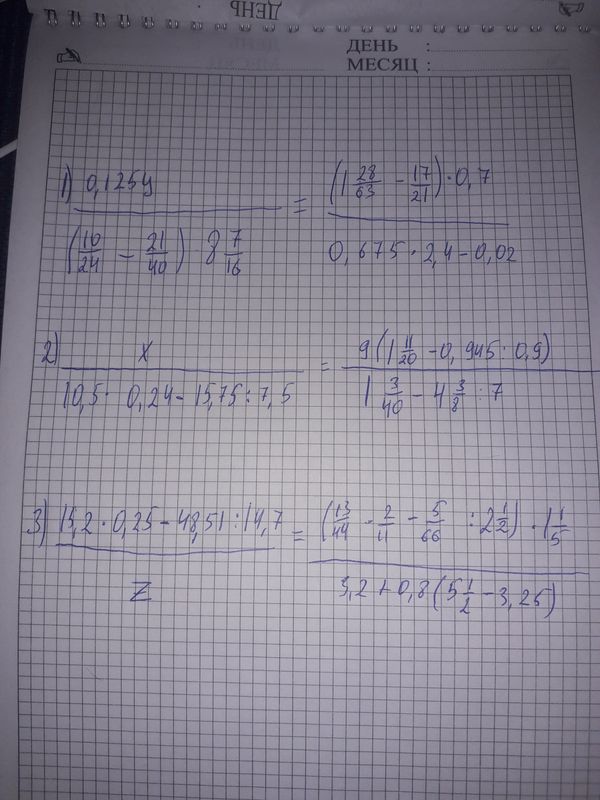 ДЕНЬ
ДЕНЬ :
МЕСЯЦ :
1) 0,125y / (10/24 - 21/40) 8 7/16 = (1 28/63 - 17/21) · 0,7 / 0,675 · 2,4 - 0,02
2) x / 10,5 · 0,24 - 15,75 : 7,5 = 9(1 11/20 - 0,945 · 0,9) / 1 3/40 - 4 3/8 : 7
3) 15,2 · 0,25 - 48,51 : 14,7 / z = (13/44 - 2/11 - 5/66 : 2 1/2) · 1 1/5 / 3,2 + 0,8(5 1/2 - 3,25)